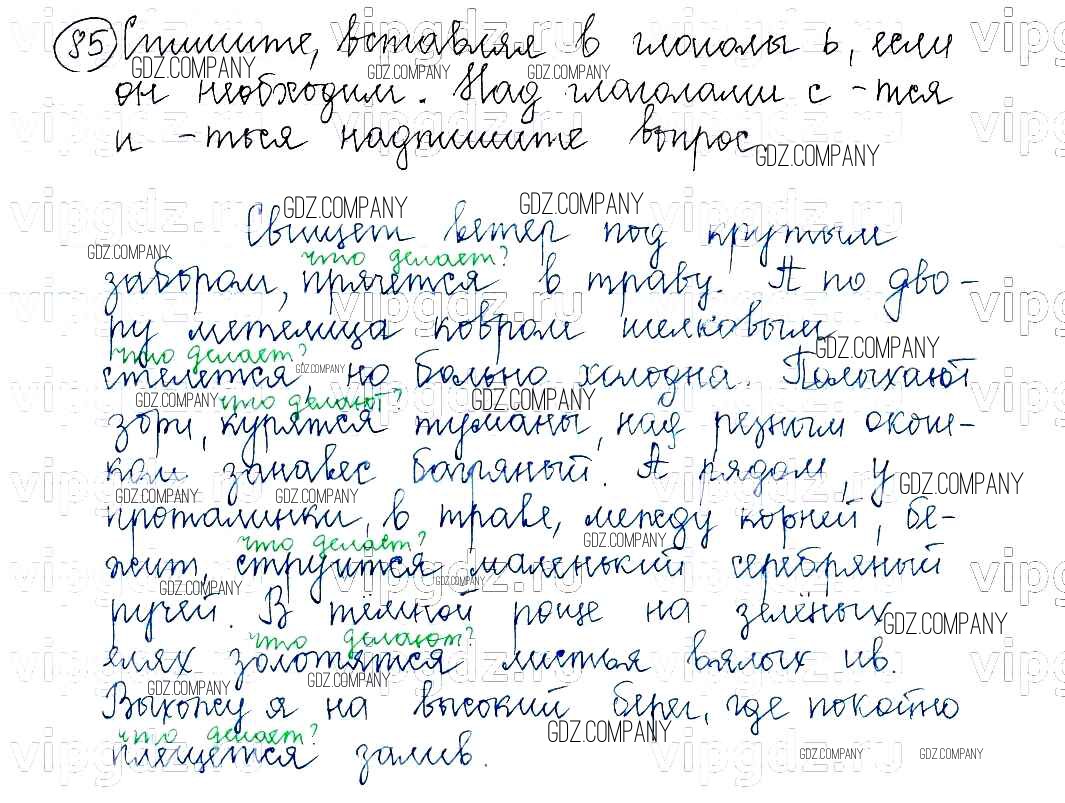 85 Спишите, вставляя в глаголы ь, если
он необходим. Над глаголами с -тся
и -ться надпишите вопрос.
Свищет ветер под крутым
что делает?
забором, прячется в траву. А по дво-
ру метелица ковром шелковым
что делает?
стелется, но больно холодна. Полыхают
что делают?
зори, курятся туманы, над резным окош-
ком занавес багряный. А рядом, у
проталинки, в траве, между корней, бе-
что делает?
жит, струится маленький серебряный
ручей. В тёмной роще на зелёных
что делают?
елях золотятся листья вялых ив.
Выхожу я на высокий берег, где покойно
что делает?
плещется залив.
GDZ.COMPANY
vipgdz.ru